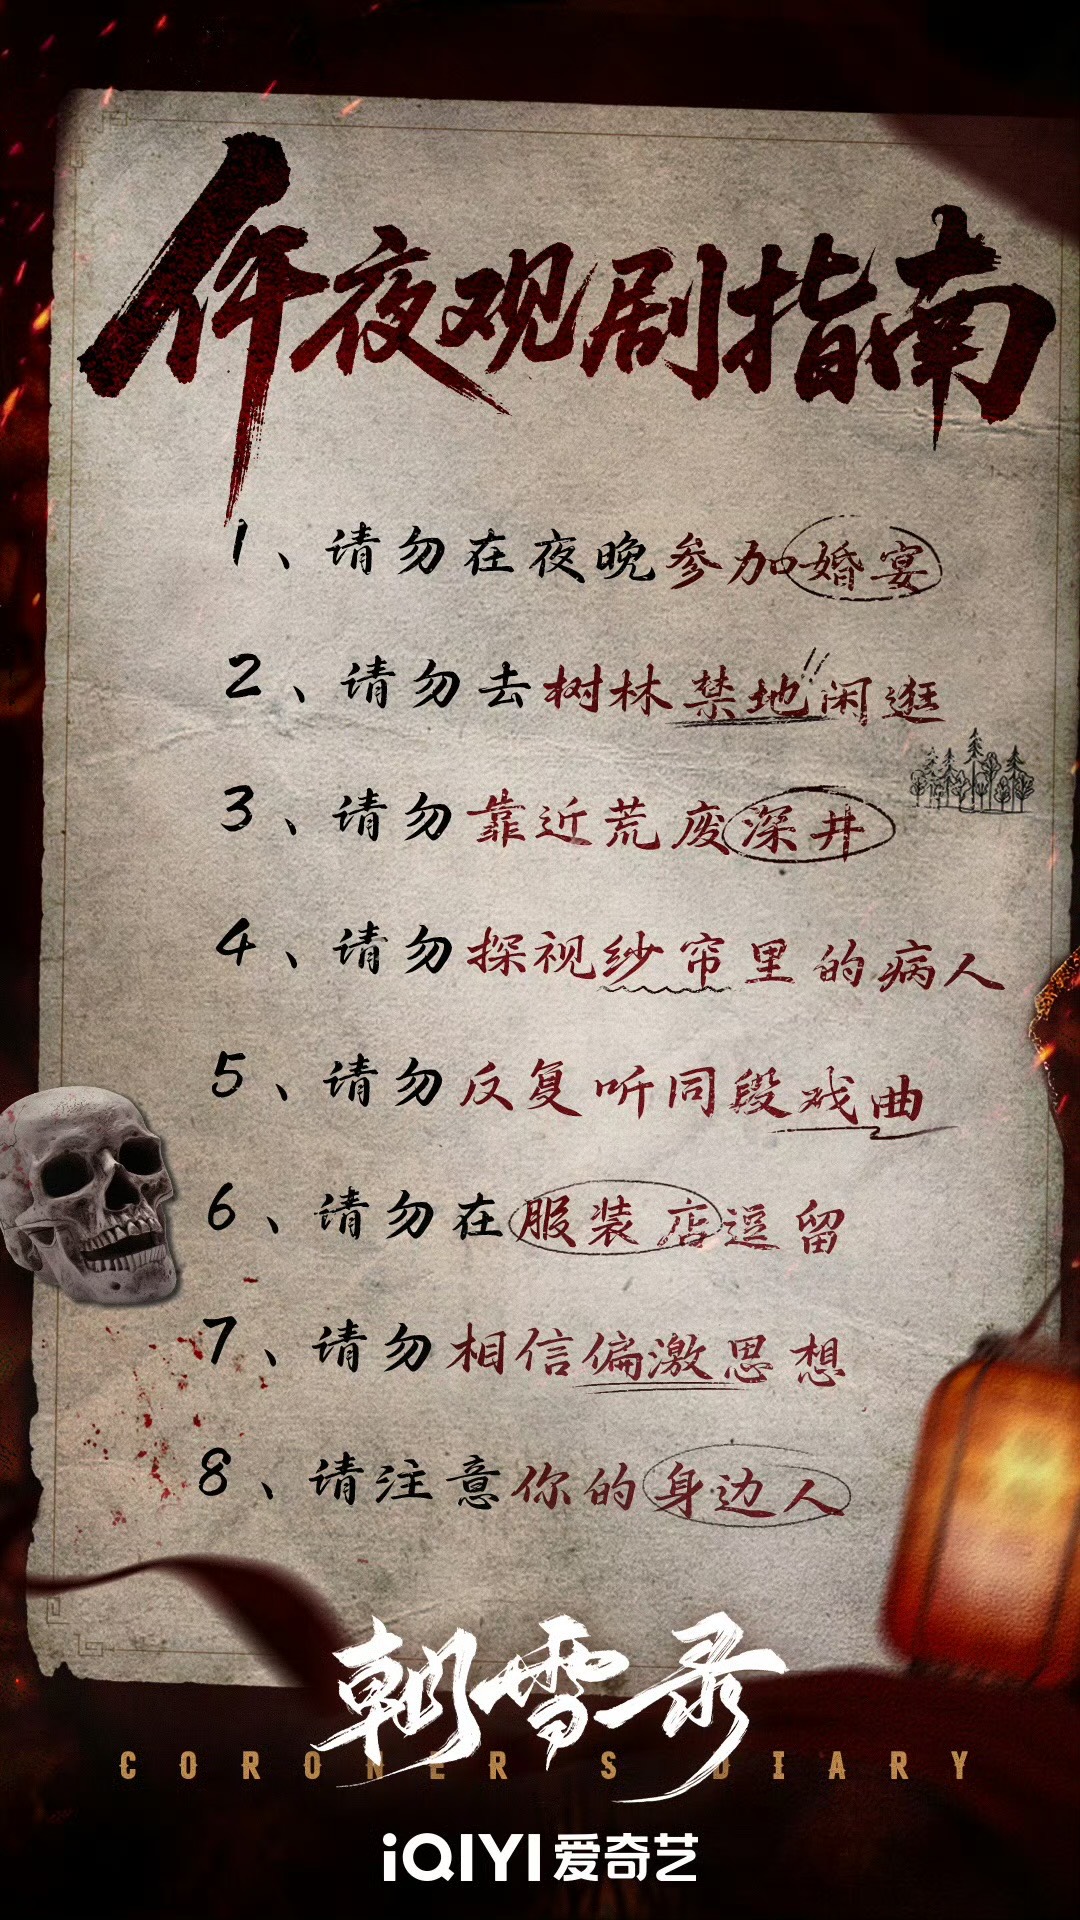 仵夜观剧指南
1、请勿在夜晚参加婚宴
2、请勿去树林禁地闲逛
3、请勿靠近荒废深井
4、请勿探视纱帘里的病人
5、请勿反复听同段戏曲
6、请勿在服装店逗留
7、请勿相信偏激思想
8、请注意你的身边人
朝雪录
CORONER'S DIARY
iQIYI 爱奇艺